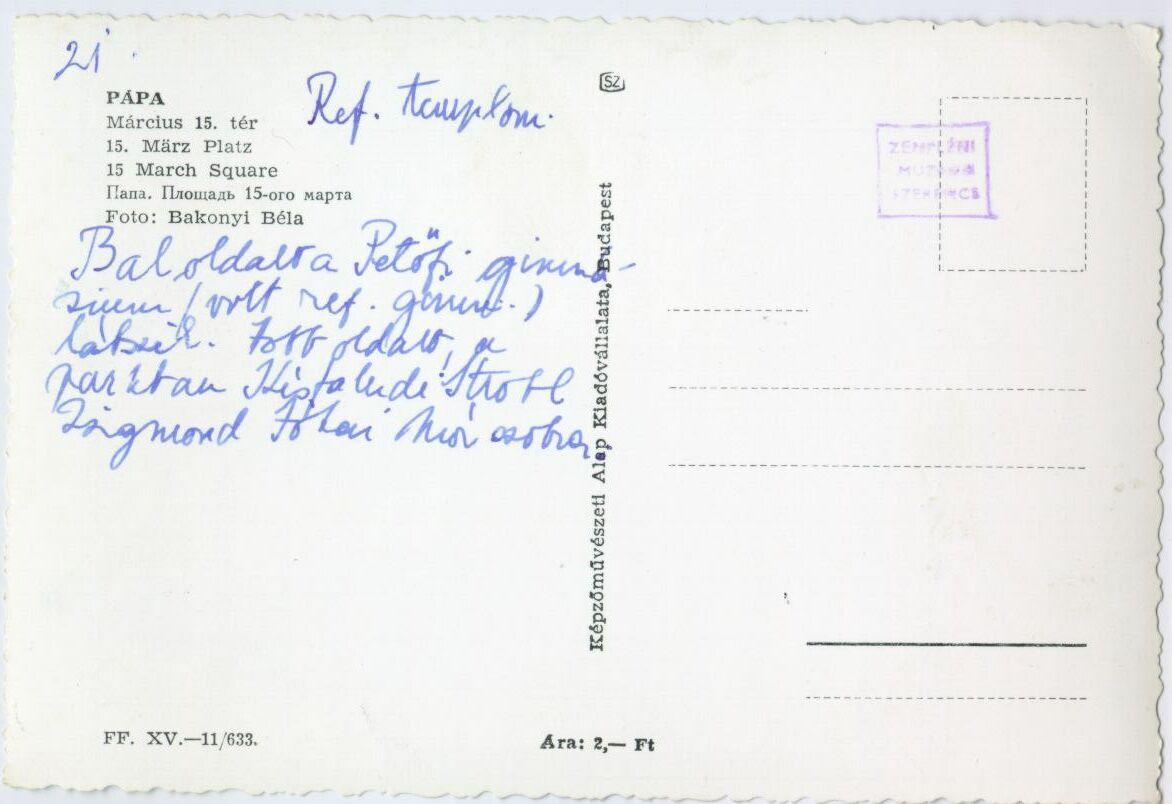 21
PÁPA
Március 15. tér
15. März Platz
15 March Square
Папа. Площадь 15-ого марта
Foto: Bakonyi Béla
Ref. templom.
Baloldalt a Petőfi gimná-
zium (volt ref. gimn.)
látszik. Jobb oldalt, a
parkban Kisfaludi Strobl
Zsigmond Jókai Mór szobra.
FF. XV.—11/633.
SZ
Képzőművészeti Alap Kiadóvállalata, Budapest
Ára: 2,— Ft
ZEMPLÉNI
MUZEUM
SZERENCS